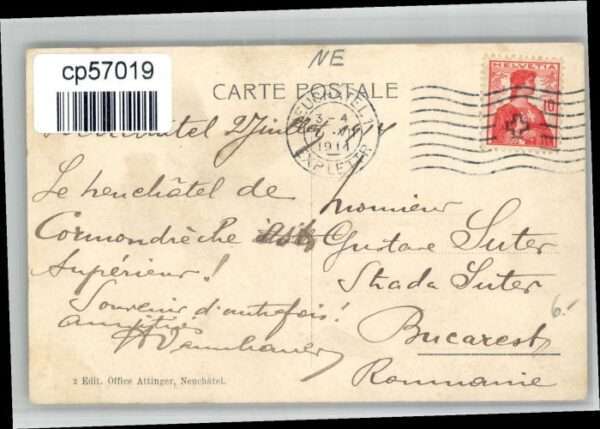 cp57019
NE
CARTE POSTALE
HELVETIA
10
NEUCHATEL 1
1914
EXP. LETTR.
Neuchâtel 2 Juillet 1914
Le neuchâtel de
Cormondrèche
Supérieur!
Souvenir d'autrefois!
amitiés
Monsieur
Gustave Suter
Strada Suter
Bucarest
Roumanie
2 Edit. Office Attinger, Neuchâtel.